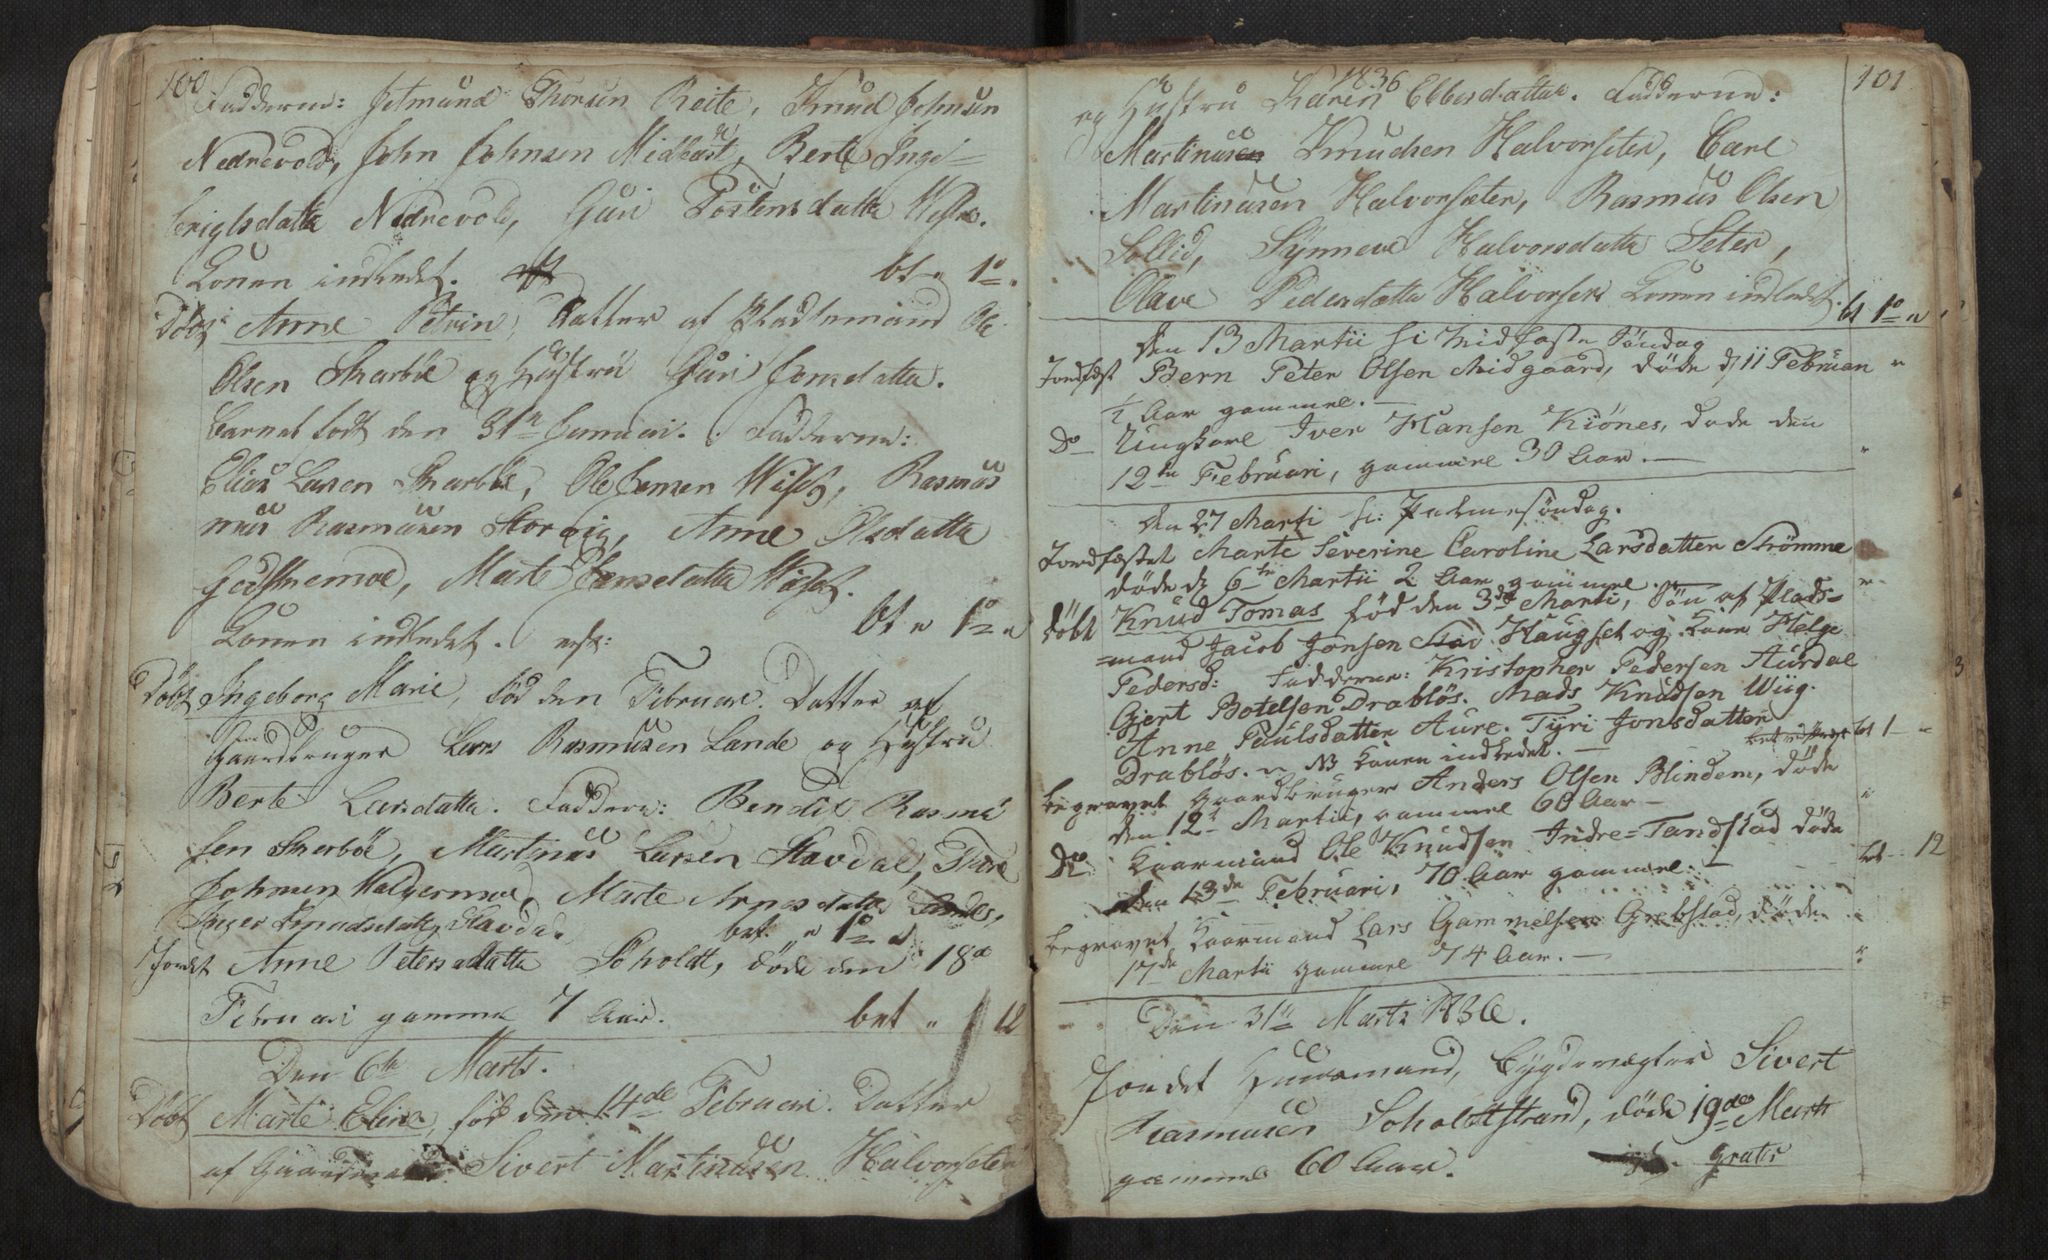 100
Fadderne: Jetmund Thorsen Reite, Knud Johnsen
Nedrevold, John Johnsen Midtet, Berte Inge-
brigtsdatter Nedrevold, Guri Tostensdatter
Konen indledet. bet " 1 "
Døbt Anne Petrine, Datter af Pladsemand Ole
Olsen Skarbøe og Hustru Guri Jonsdatter.
Barnet født den 31te Januari. Fadderne:
Elias Larsen Skarbøe, Ole Jensen Rasmus
Rasmusen Storvig, Anne Olsdatter
Marte Jensdatter
Konen indledet. bet " 1 "
Døbt Ingeborg Marie, fød den Februar. Datter af
Gaardbruger Lars Rasmusen Lande og Hustru
Berte Larsdatter. Faddere: Bendix Rasmu
sen Skarbøe, Martinus Larsen Stavdal, Thore
Johnsen Marte Arnesdatter
Inger Knudsdatter Stavdal. bet " 1 "
Jordet Anne Petersdatter Soholdt, døde den 18de
Februari gammel 7 Aar. bet " 12
Den 6te Marts.
Døbt Marte Eline, fød den 14de Februari. Datter
af Gaardmand Sivert Martinusen Halvorsæter
1836
101
og Hustru Karen Ebbesdatter. Fadderne:
Martinus Knudsen Halvorseter, Carl
Martinusen Halvorsæter, Rasmus Olsen
Sollid, Synneve Halvorsdatter Seter,
Olave Pedersdatter Halvorseter Konen indledet. bt 1 "
Den 13 Martii fi Midfaste Søndag
Jordfæst Bern Peter Olsen Midgaard, døde d 11 Februari "
½ Aar gammel. —
Do Ungkarl Iver Hansen Kiönes, døde den
12te Februari, gammel 30 Aar. — "
Den 27 Marti fi: Palmesöndag.
Jordfæstet Marte Severine Caroline Larsdatter Strömme
døde d 6te Martii 2 Aar gammel. "
døbt Knud Tomas fød den 3de Marti, Sön af Plads=
=mand Jacob Jonsen Haugset og Kone Helge
Pedersd: Fadderne: Kristopher Pedersen Aurdal
Gjert Botelsen Drablös. Mads Knudsen Wiig.
Anne Paulsdatter Aure. Tyri Jonsdatter
Drablös. NB Konen indledet. — bt 1 "
begravet Gaardbruger Anders Olsen Blindem, døde
den 12te Martii, gammel 60 Aar —
Do Kaarmand Ole Knudsen Indre=Tandstad døde
den 13de Februari, 70 Aar gammel. — bet 12
begravet Kaarmand Lars Gammelsen Grebstad, døde
17de Martii gammel 74 Aar. — "
Den 31te Marts 1836.
Jordet Huusmand, Bygdevægter Sivert
Rasmusen Soholdtstrand, døde 19de Marti
gammel 60 Aar. gratis
3